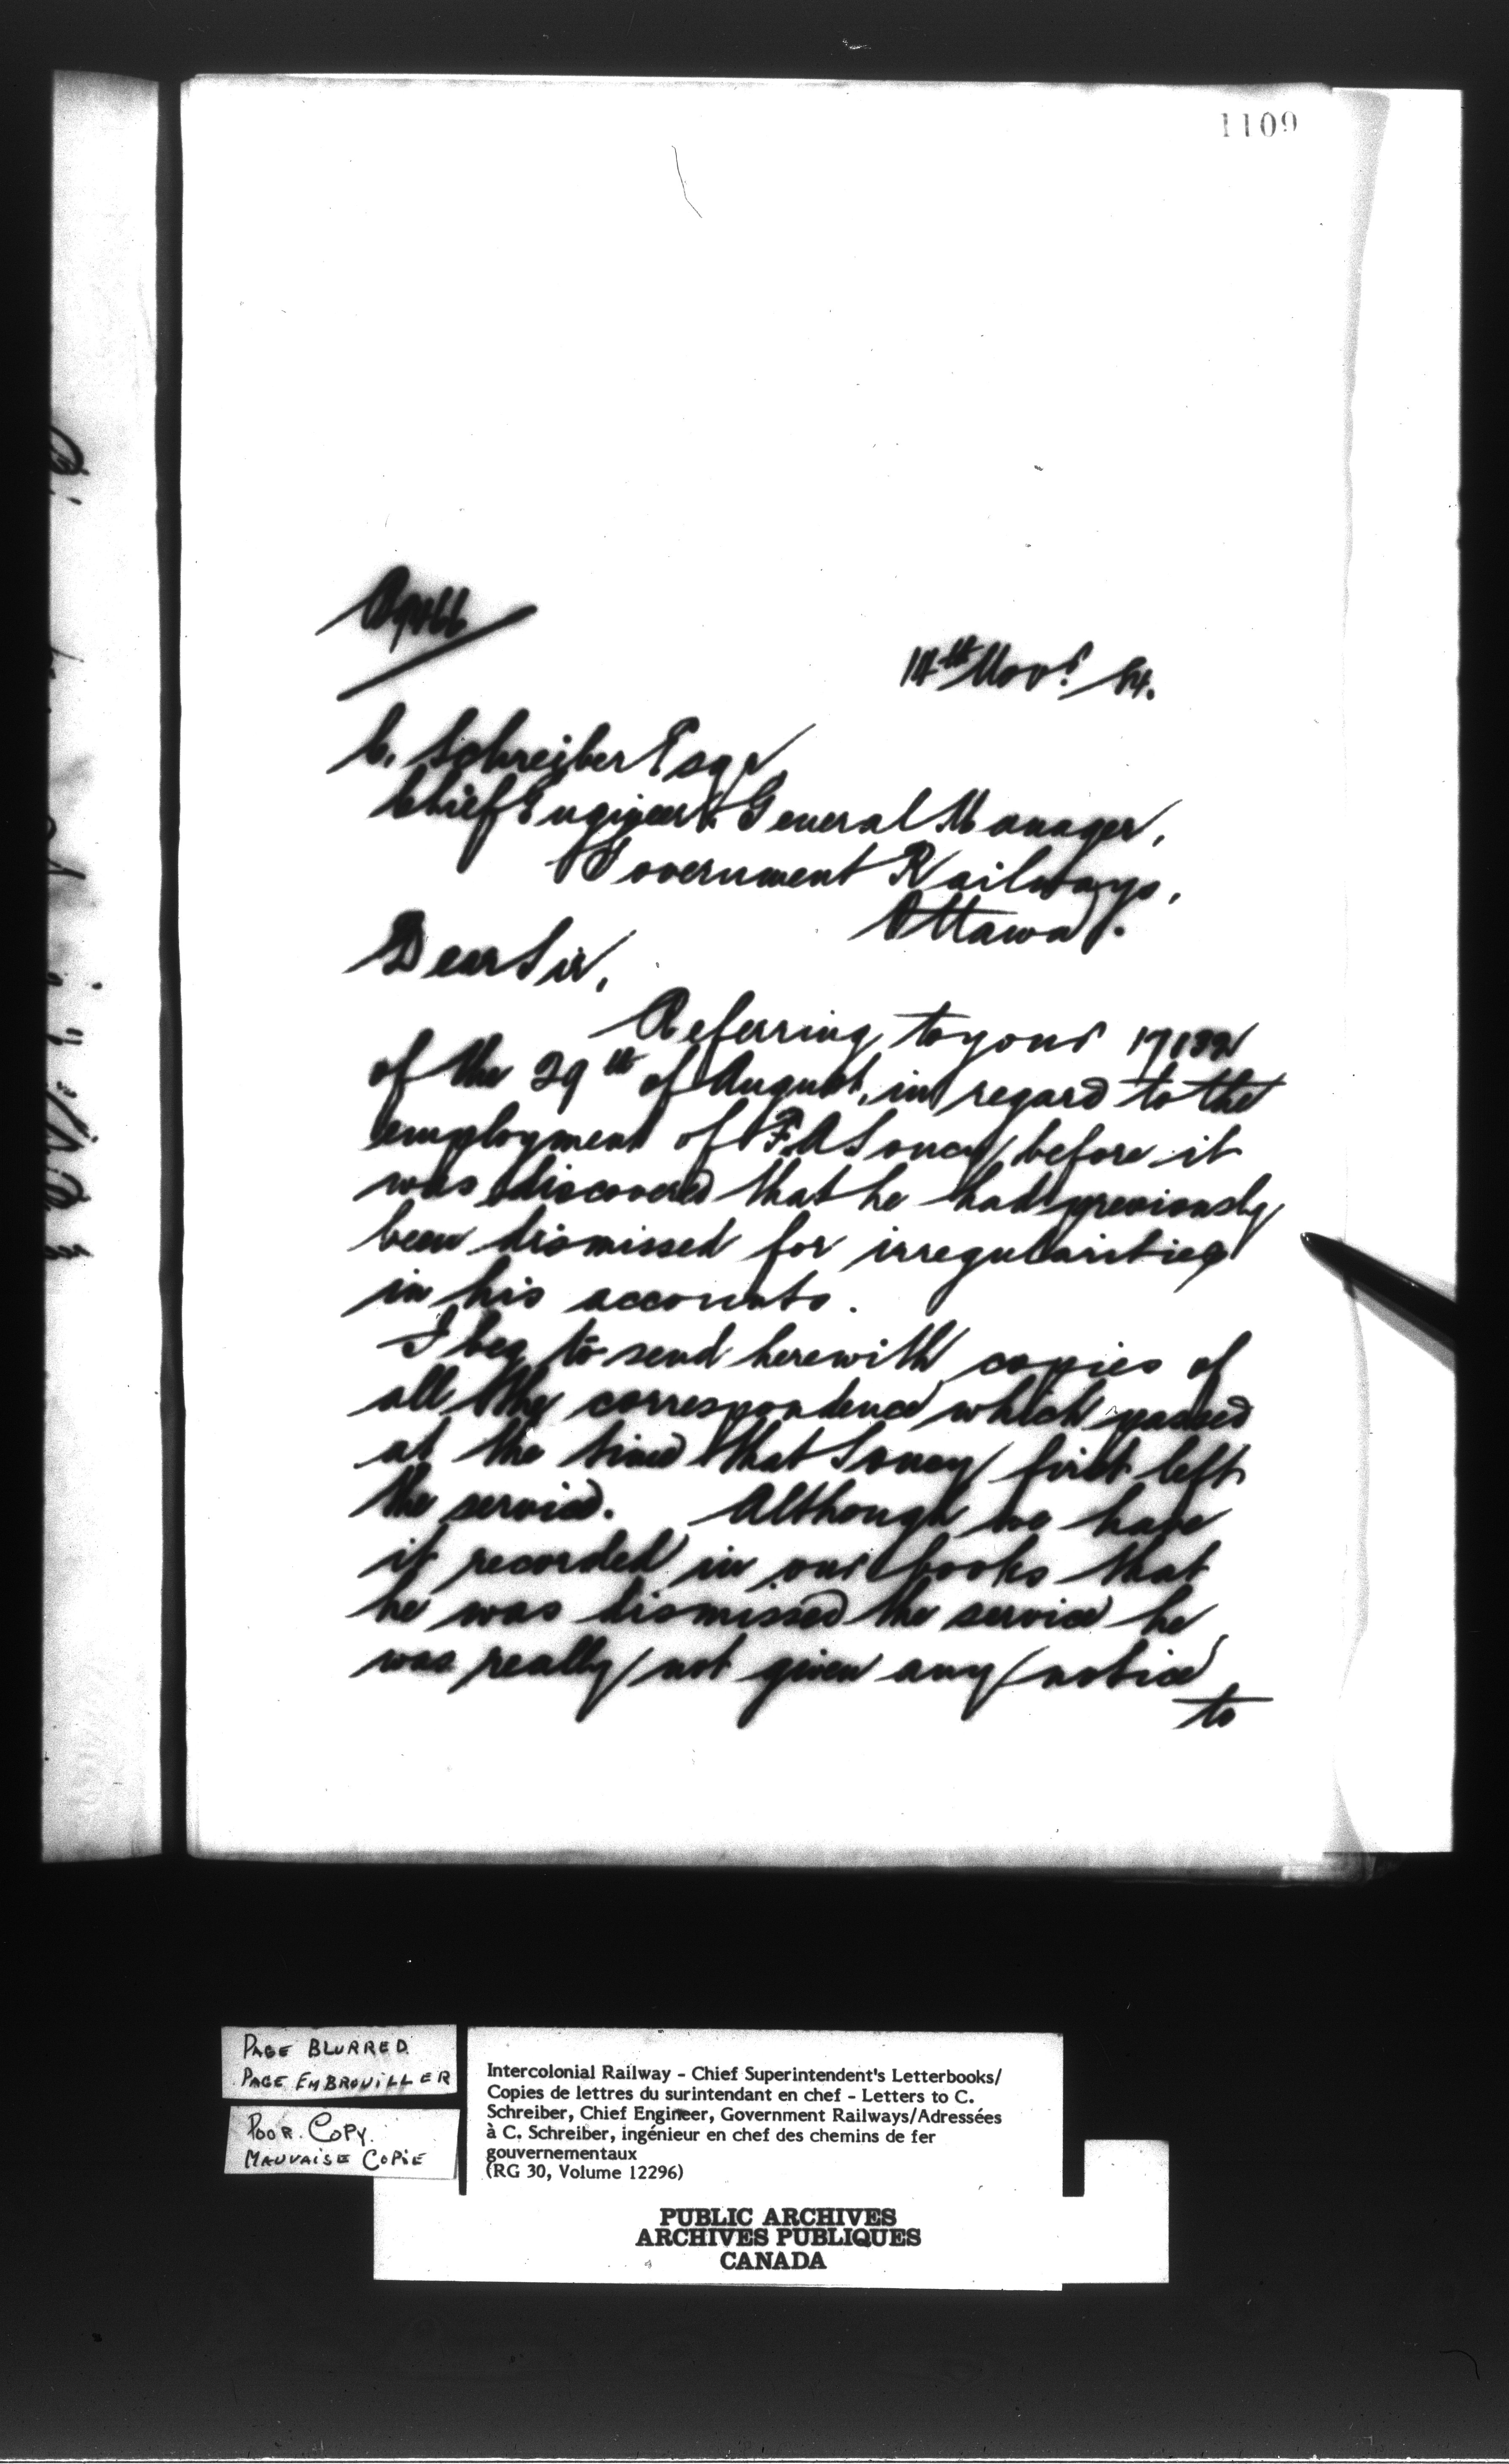 1109
14th Novr. 84.
C. Schreiber Esqr
Chief Engineer & General Manager,
Government Railways,
Ottawa.
Dear Sir,
Referring to your
of the 29th of August, in regard to the
employment of F.A. Soucy before it
was discovered that he had previously
been dismissed for irregularities
in his accounts.
I beg to send herewith copies of
all the correspondence which passed
at the time that Soucy first left
the service. Although we have
it recorded in our books that
he was dismissed the service he
was really not given any notice
to
PAGE BLURRED
PAGE EMBROUILLER
POOR COPY.
MAUVAISE COPIE
Intercolonial Railway - Chief Superintendent's Letterbooks/
Copies de lettres du surintendant en chef - Letters to C.
Schreiber, Chief Engineer, Government Railways/Adressées
à C. Schreiber, ingénieur en chef des chemins de fer
gouvernementaux
(RG 30, Volume 12296)
PUBLIC ARCHIVES
ARCHIVES PUBLIQUES
CANADA